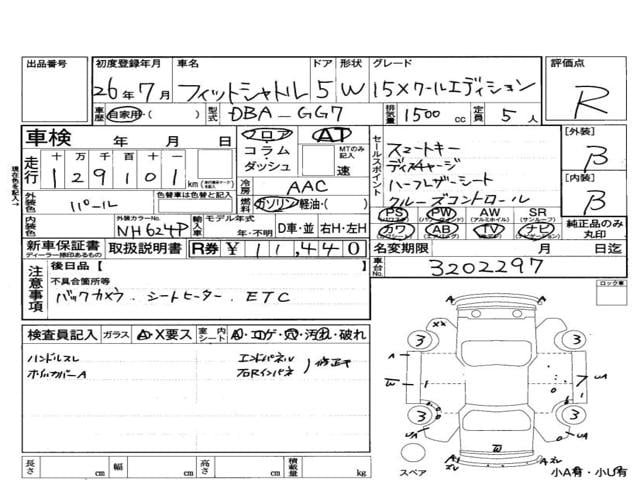 出品番号 初度登録年月 車名 ドア 形状 グレード 評価点
26年7月 フィットシャトル 5 W 15Xクールエディション R
車歴 自家用・( ) 型式 DBA-GG7 排気量 1500 cc 定員 5 人
車検 年 月 日 フロア コラム ダッシュ AT MTのみ記入 速
走行 十 万 千 百 十 一
129101 km
セールスポイント スマートキー
ディスチャージ
ハーフレザーシート
クルーズコントロール
[外装] B
[内装] B
冷房 AAC
外装色 パール 色替車は色替と記入
燃料 ガソリン・軽油・( )
内装色 外装カラーNo. NH624P 輸入車 モデル年式 年・不明 D車・並 右H・左H
PS PW AW SR
(パワステ) (パワーウィンドウ) (アルミホイル) (サンルーフ)
カワ AB TV ナビ
純正品のみ丸印
新車保証書 ディーラー捺印あるもの 取扱説明書 R券 ¥11,440
名変期限 月 日迄
注意事項 後日品【 】
不具合箇所等
バックカメラ. シートヒーター. ETC
車台No. 3202297
ロック車
検査員記入 ガラス A・X要ス 室内シート キ・コゲ・穴・汚れ・破れ
ハンドルスレ エンドパネル
ホイルカバーA 右Rインパネ 修正キ
3 3
3 3
スペア
小A有・小U有
長さ cm 幅 cm 高さ cm 積載量 kg
現在色を記入→